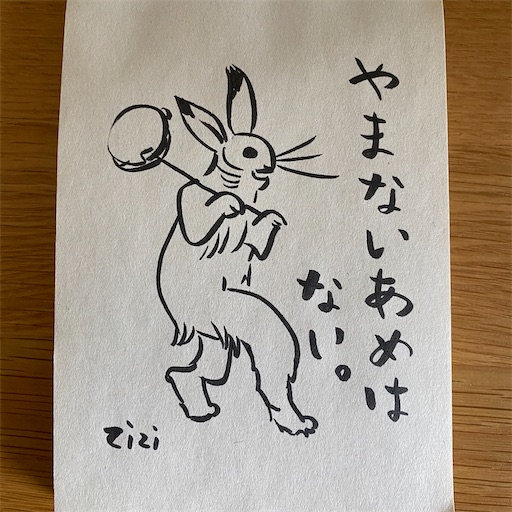 やまないあめは
ない。
tizi